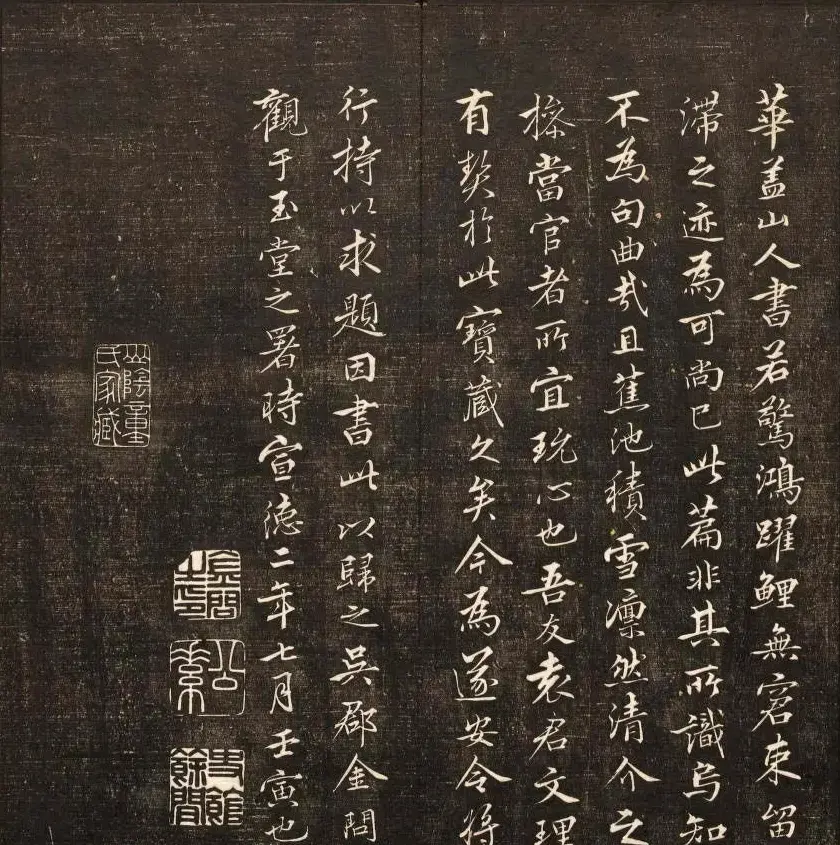 華蓋山人書若驚鴻躍鯉無窘束留
滯之迹為可尚已此篇非其所識烏知
不為句曲哉且蕉池積雪凜然清介之
操當官者所宜玩心也吾友袁君文理
有契於此寶藏久矣今為遂安令將
行持以求題因書此以歸之吳郡金問
觀于玉堂之署時宣德二年七月壬寅也
山陰童氏家藏
公素
史館餘閒